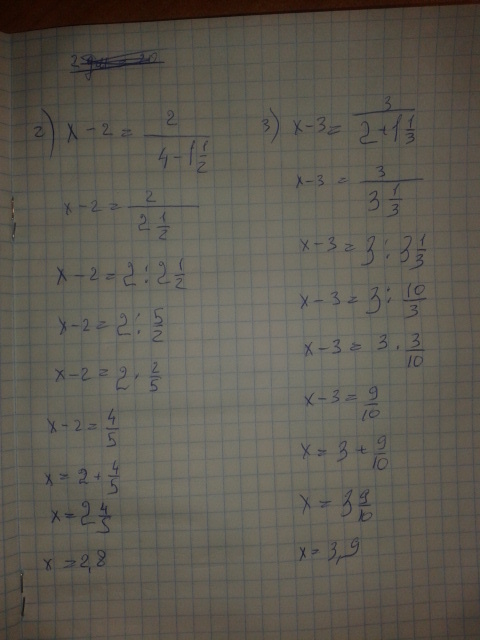 2) x - 2 = 2/(4 - 1 1/2)
x - 2 = 2/(2 1/2)
x - 2 = 2 : 2 1/2
x - 2 = 2 : 5/2
x - 2 = 2 · 2/5
x - 2 = 4/5
x = 2 + 4/5
x = 2 4/5
x = 2,8
3) x - 3 = 3/(2 + 1 1/3)
x - 3 = 3/(3 1/3)
x - 3 = 3 : 3 1/3
x - 3 = 3 : 10/3
x - 3 = 3 · 3/10
x - 3 = 9/10
x = 3 + 9/10
x = 3 9/10
x = 3,9